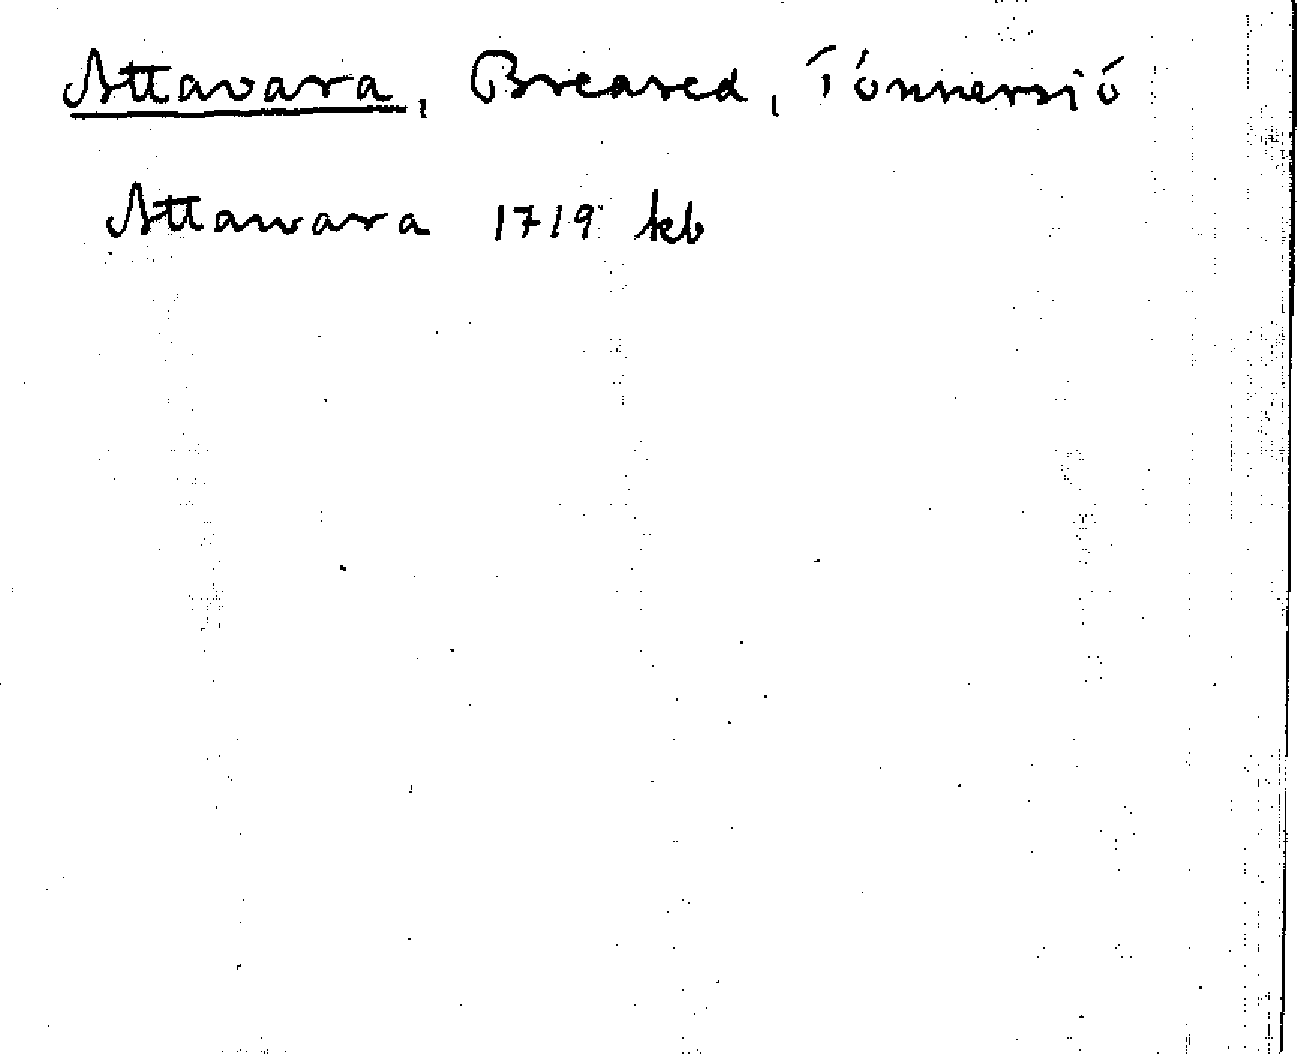 Attavara, Breared, Tönnersjö
Attawara 1719 kb